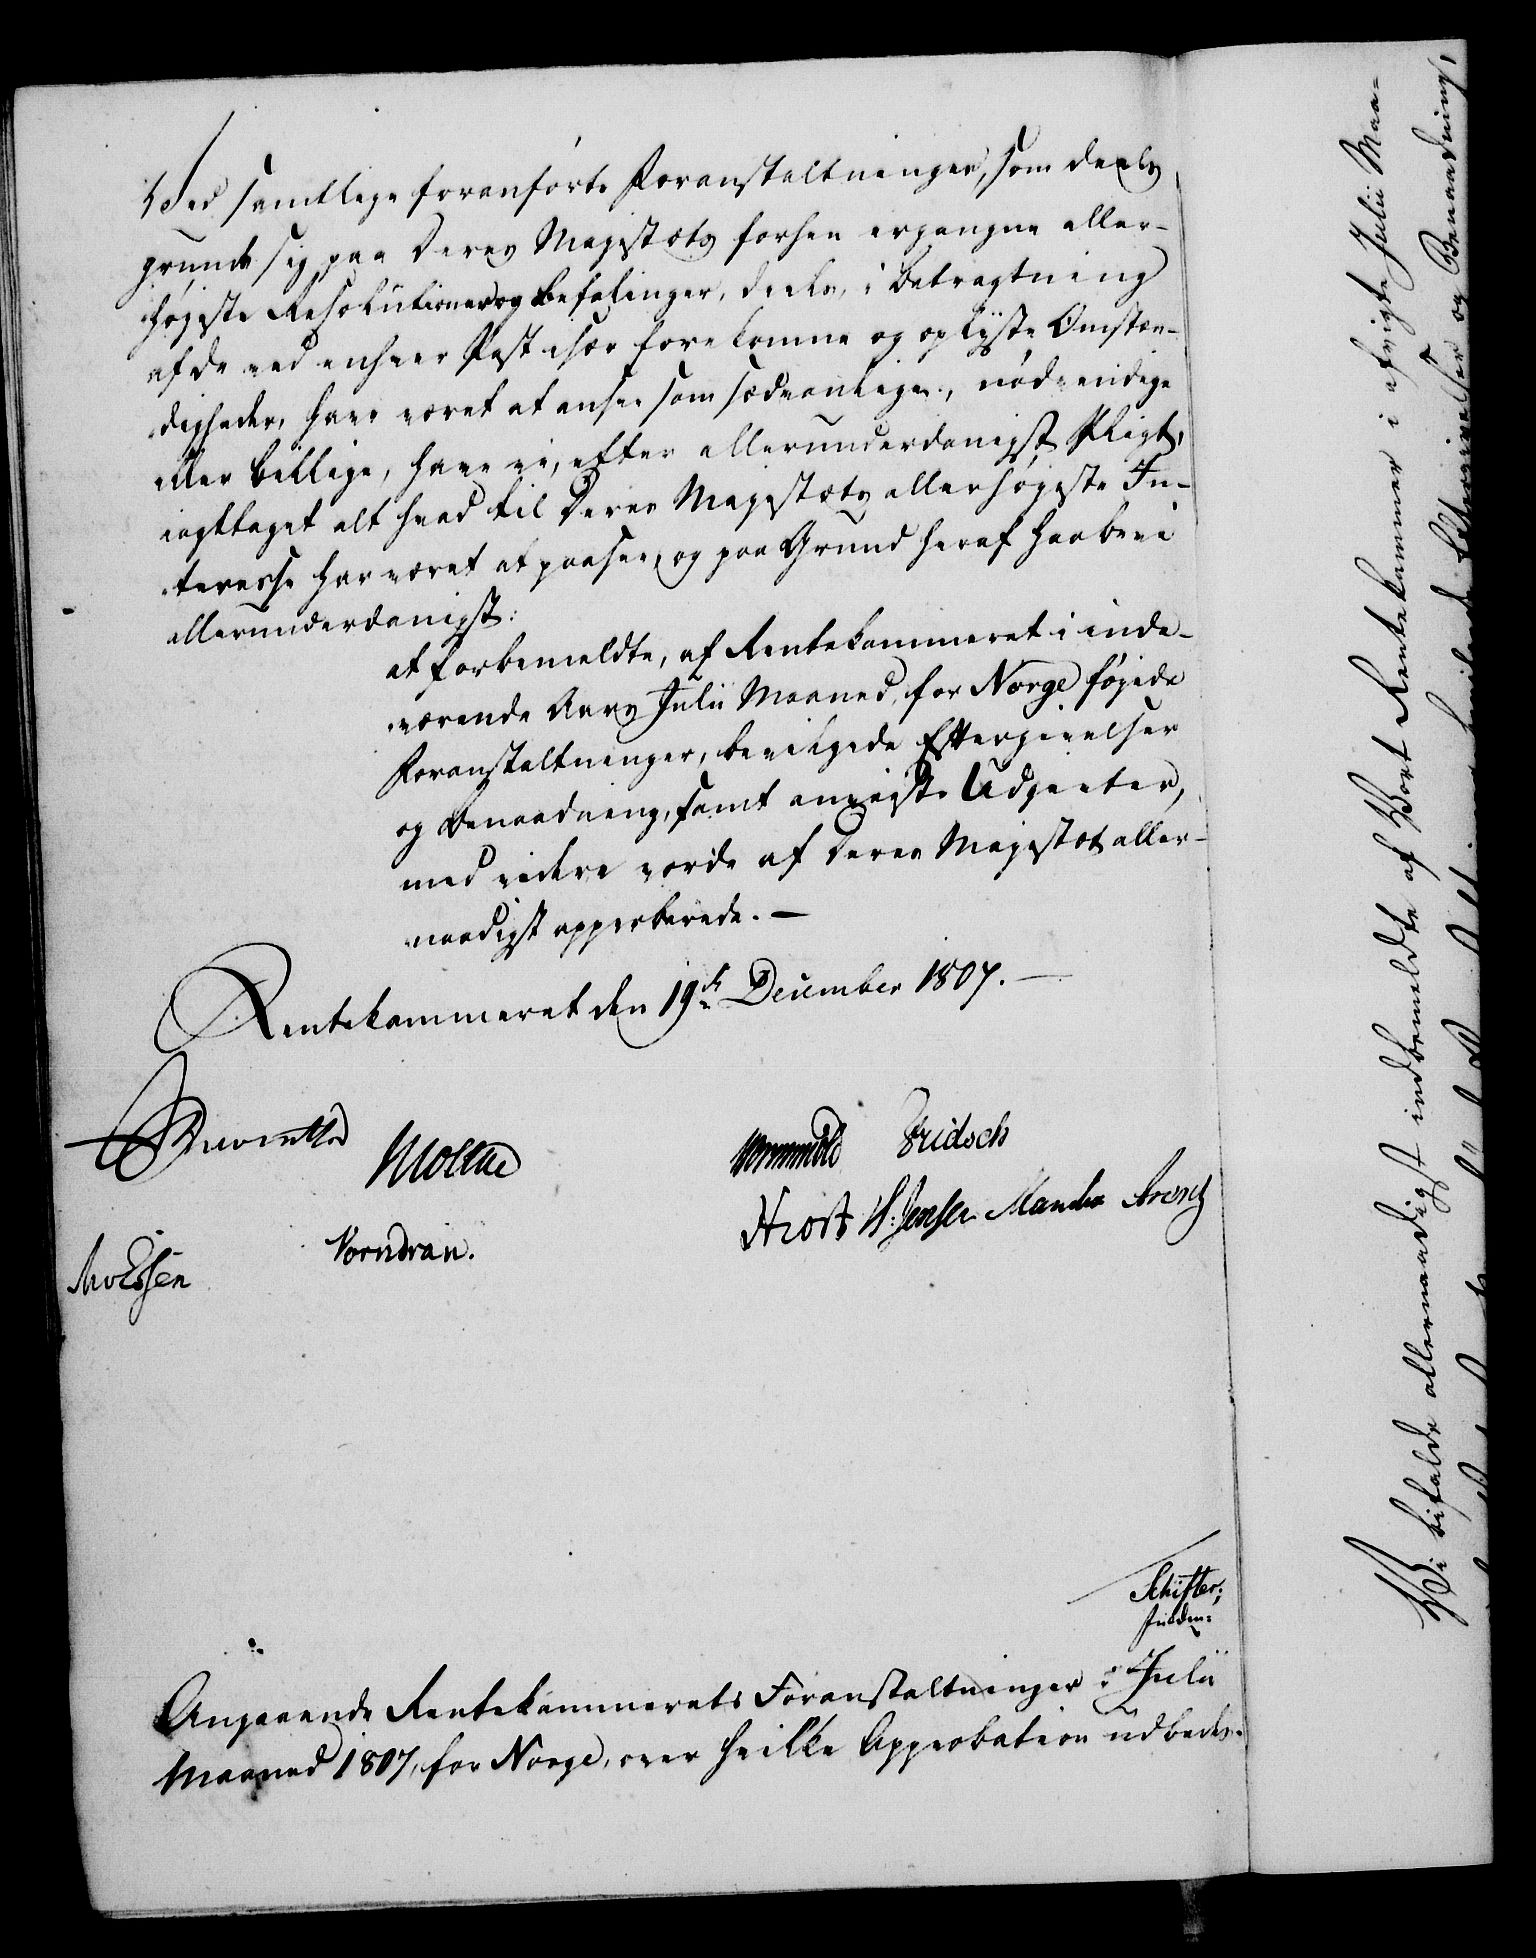 Ved samtlige foranførte Foranstaltninger, som deels
grunde sig paa Deres Majestæts forhen ergangne aller-
højeste Resolutioner og Befalinger, deels, i Betragtning
af de ved enhver Post især forekomne og oplyste Omstæn-
digheder, have været at ansee som sædvanlige, nødvendige
eller billige, have vi, efter allerunderdanigst Pligt,
iagttaget alt hvad til Deres Majestæts allerhøjeste In-
teresse har været at paasee, og paa Grund heraf haabe vi
allerunderdanigst:
at forbemeldte, af Rentekammeret i inde-
værende Aars Julii Maaned, for Norge føjede
Foranstaltninger, bevilgede Eftergivelser
og Benaadning, samt anviste Udgivter,
med videre vorde af Deres Majestæt aller-
naadigst approberede. —
Rentekammeret den 19de December 1807. —
Reventlow
Moltke
Wormskiold
Fridsch
Hrost H: Jensen Manthe Arentz
MvEssen
Vorndran.
Schifter;
Angaaende Rentekammerets Foranstaltninger i Julii
Maaned 1807, for Norge, over hvilke Approbation udbedes.
Vi bifalde allernaadigst indbemeldte af Vort Rentekammer i afvigte Julii Maa-
Eftergivelser og Benaadning,